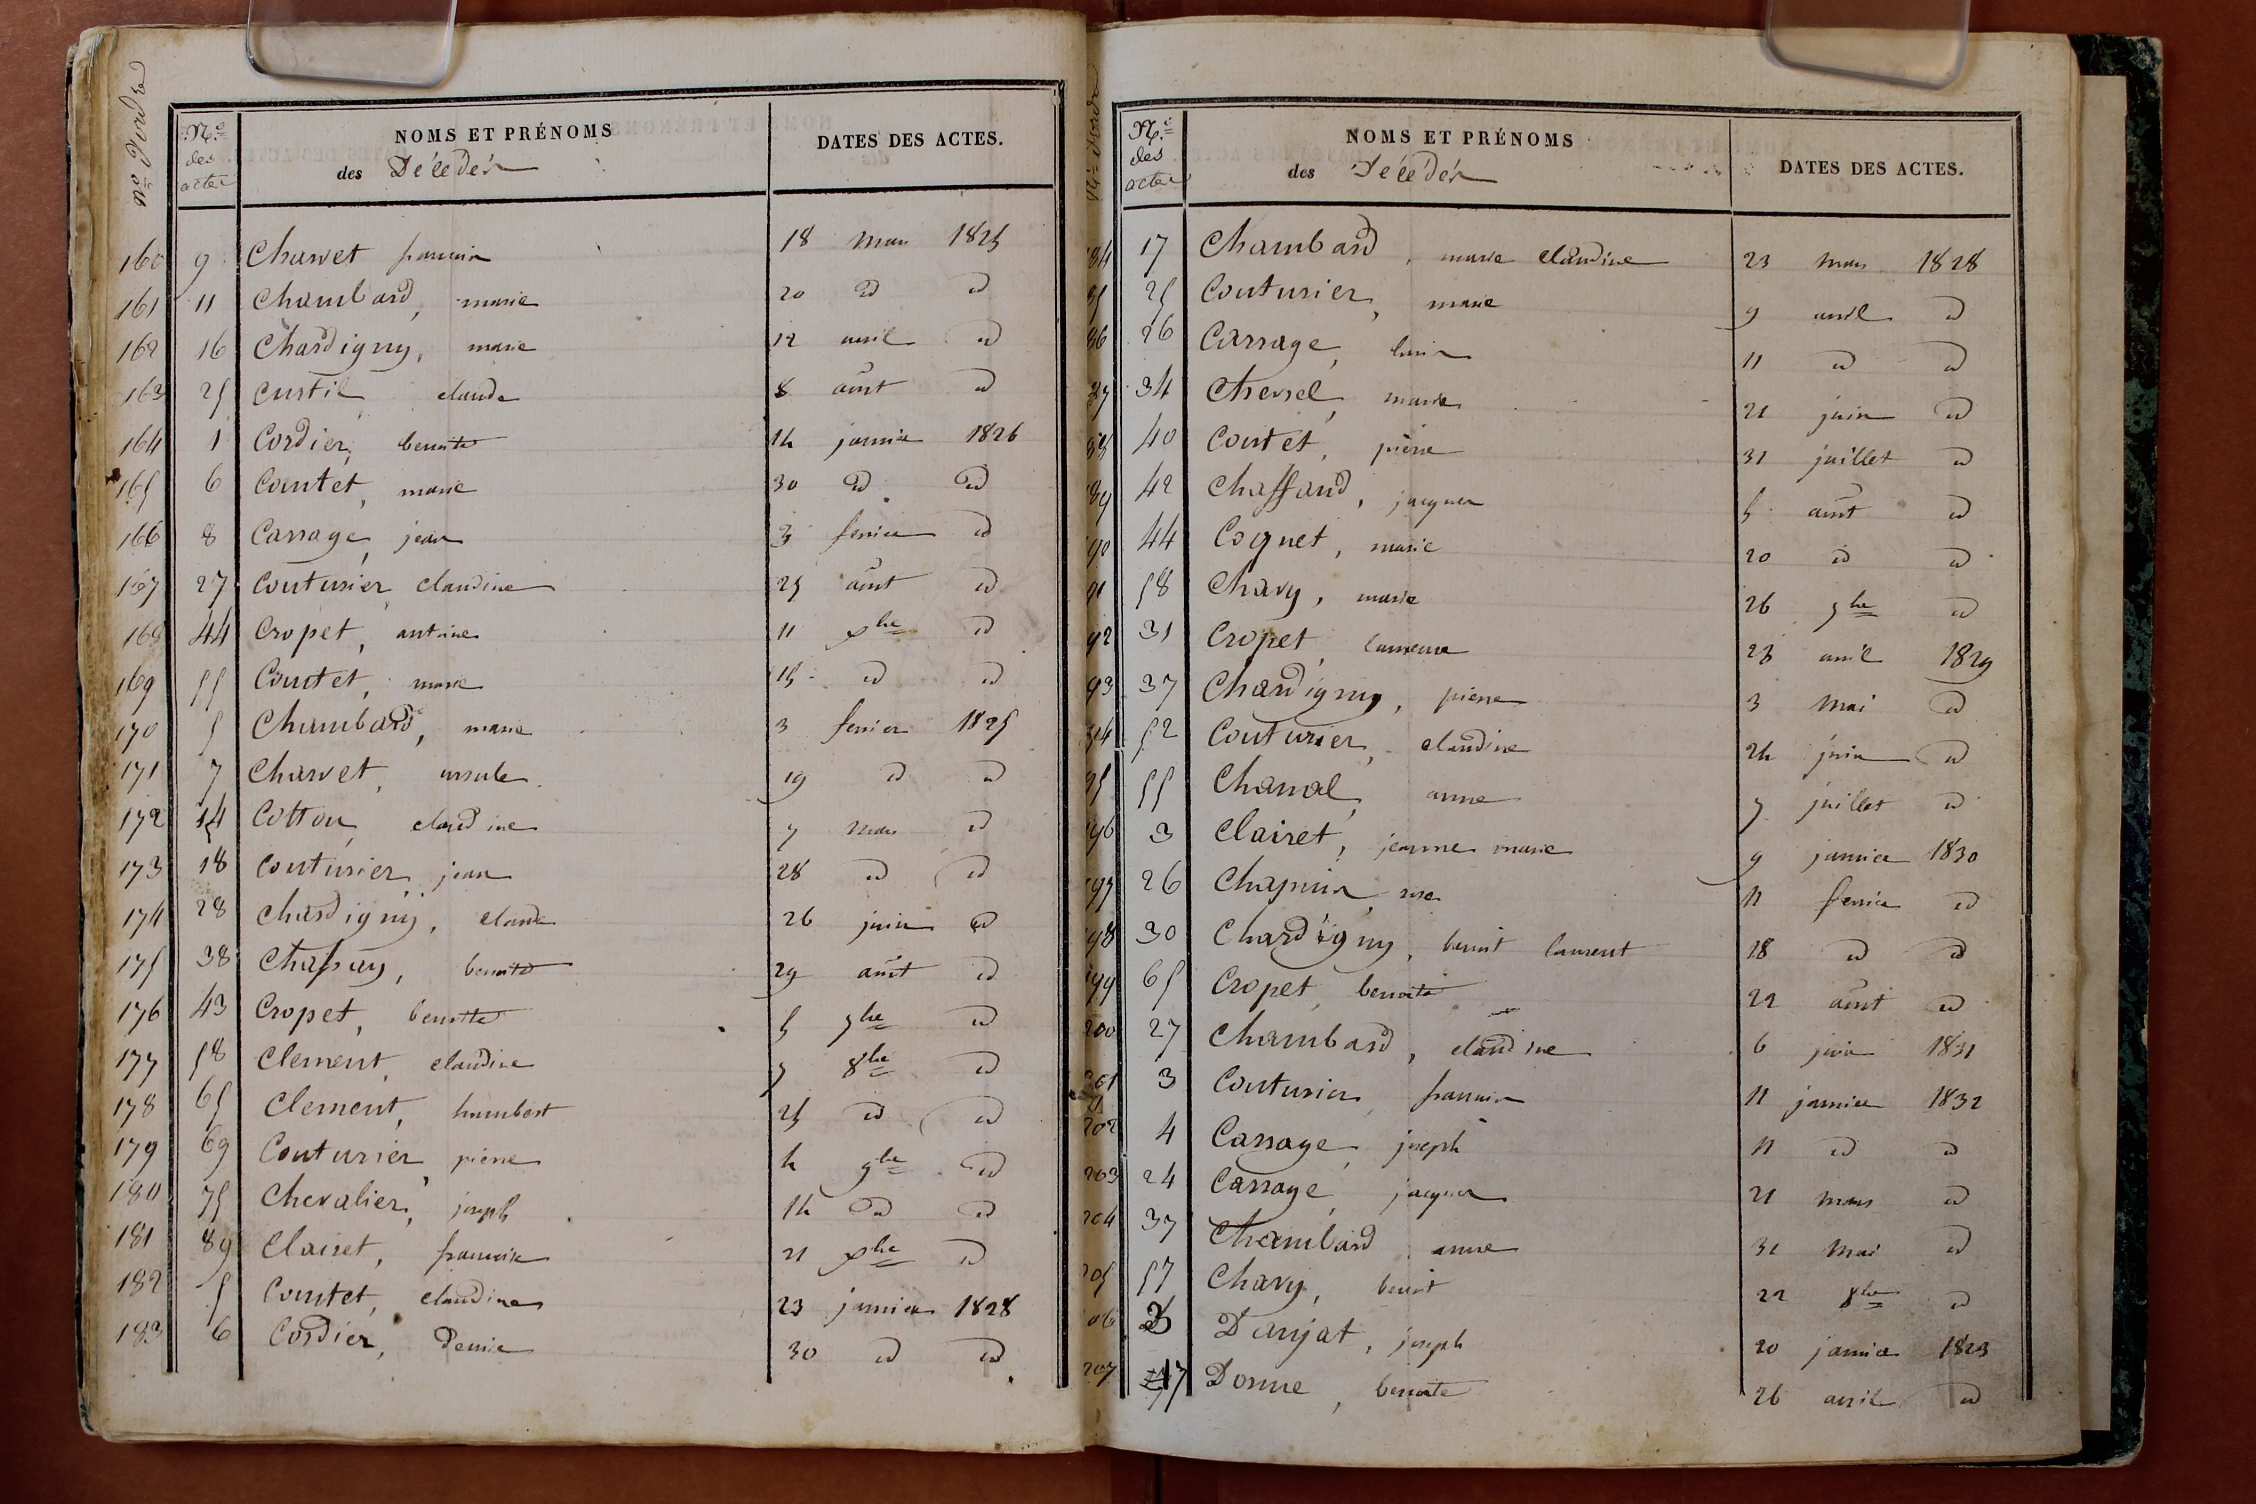 No d'ordre
Nos des actes NOMS ET PRÉNOMS des Décédés DATES DES ACTES.
160 9 Charvet francois 18 mars 1825
161 11 Chambard, marie 20 id id
162 16 Chardigny, marie 12 avril id
163 25 Custil claude 8 aout id
164 1 Cordier, benoite 14 janvier 1826
165 6 Coutet, marie 30 id id
166 8 Carrage, jean 3 fevrier id
167 27 Couturier claudine 25 aout id
168 44 Cropet, antoine 11 xbre id
169 55 Coutet, marie 15 id id
170 5 Chambard, marie 3 fevrier 1825
171 7 Charvet, ursule 19 id id
172 14 Cotton, claudine 7 mars id
173 18 Couturier, jean 28 id id
174 28 Chardigny, claude 26 juin id
175 38 Chapuy, benoite 29 aout id
176 43 Cropet, benoite 5 7bre id
177 58 Clement, claudine 7 8bre id
178 65 Clement, humbert 25 id id
179 69 Couturier, pierre 4 9bre id
180 75 Chevalier, joseph 14 id id
181 89 Clairet, francoise 21 xbre id
182 5 Coutet, claudine 23 janvier 1828
183 6 Cordier, Denise 30 id id
Nos des actes NOMS ET PRÉNOMS des Décédés DATES DES ACTES.
184 17 Chambard, marie claudine 23 mars 1828
85 25 Couturier, marie 9 avril id
86 26 Carrage, louis 11 id id
87 34 Chevrel, marie 21 juin id
88 40 Coutet, pierre 31 juillet id
89 42 Chaffaud, jacques 5 aout id
190 44 Coquet, marie 20 id id
91 58 Chavy, marie 26 9bre id
92 31 Cropet, 23 avril 1829
93 37 Chardigny, pierre 3 mai id
94 52 Couturier, claudine 24 juin id
95 55 Chanal, anne 7 juillet id
196 3 Clairet, jeanne marie 9 janvier 1830
197 26 Chapuis, rose 11 fevrier id
198 30 Chardigny, benoit laurent 18 id id
199 65 Cropet, benoite 22 aout id
200 27 Chambard, claudine 6 juin 1831
201 3 Couturier, francois 11 janvier 1832
202 4 Carrage, joseph 11 id id
203 24 Carrage, jacques 21 mars id
204 37 Chambard, anne 31 mai id
205 57 Chavy, benoit 22 8bre id
206 3 Danjat, joseph 20 janvier 1823
207 17 Donne, benoite 26 avril id